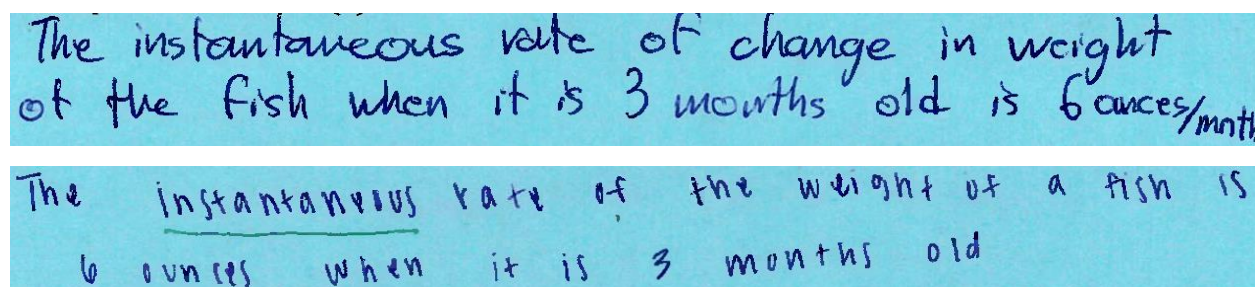 The instantaneous rate of change in weight
of the fish when it is 3 months old is 6 ounces/mnth
The instantaneous rate of the weight of a fish is
6 ounces when it is 3 months old